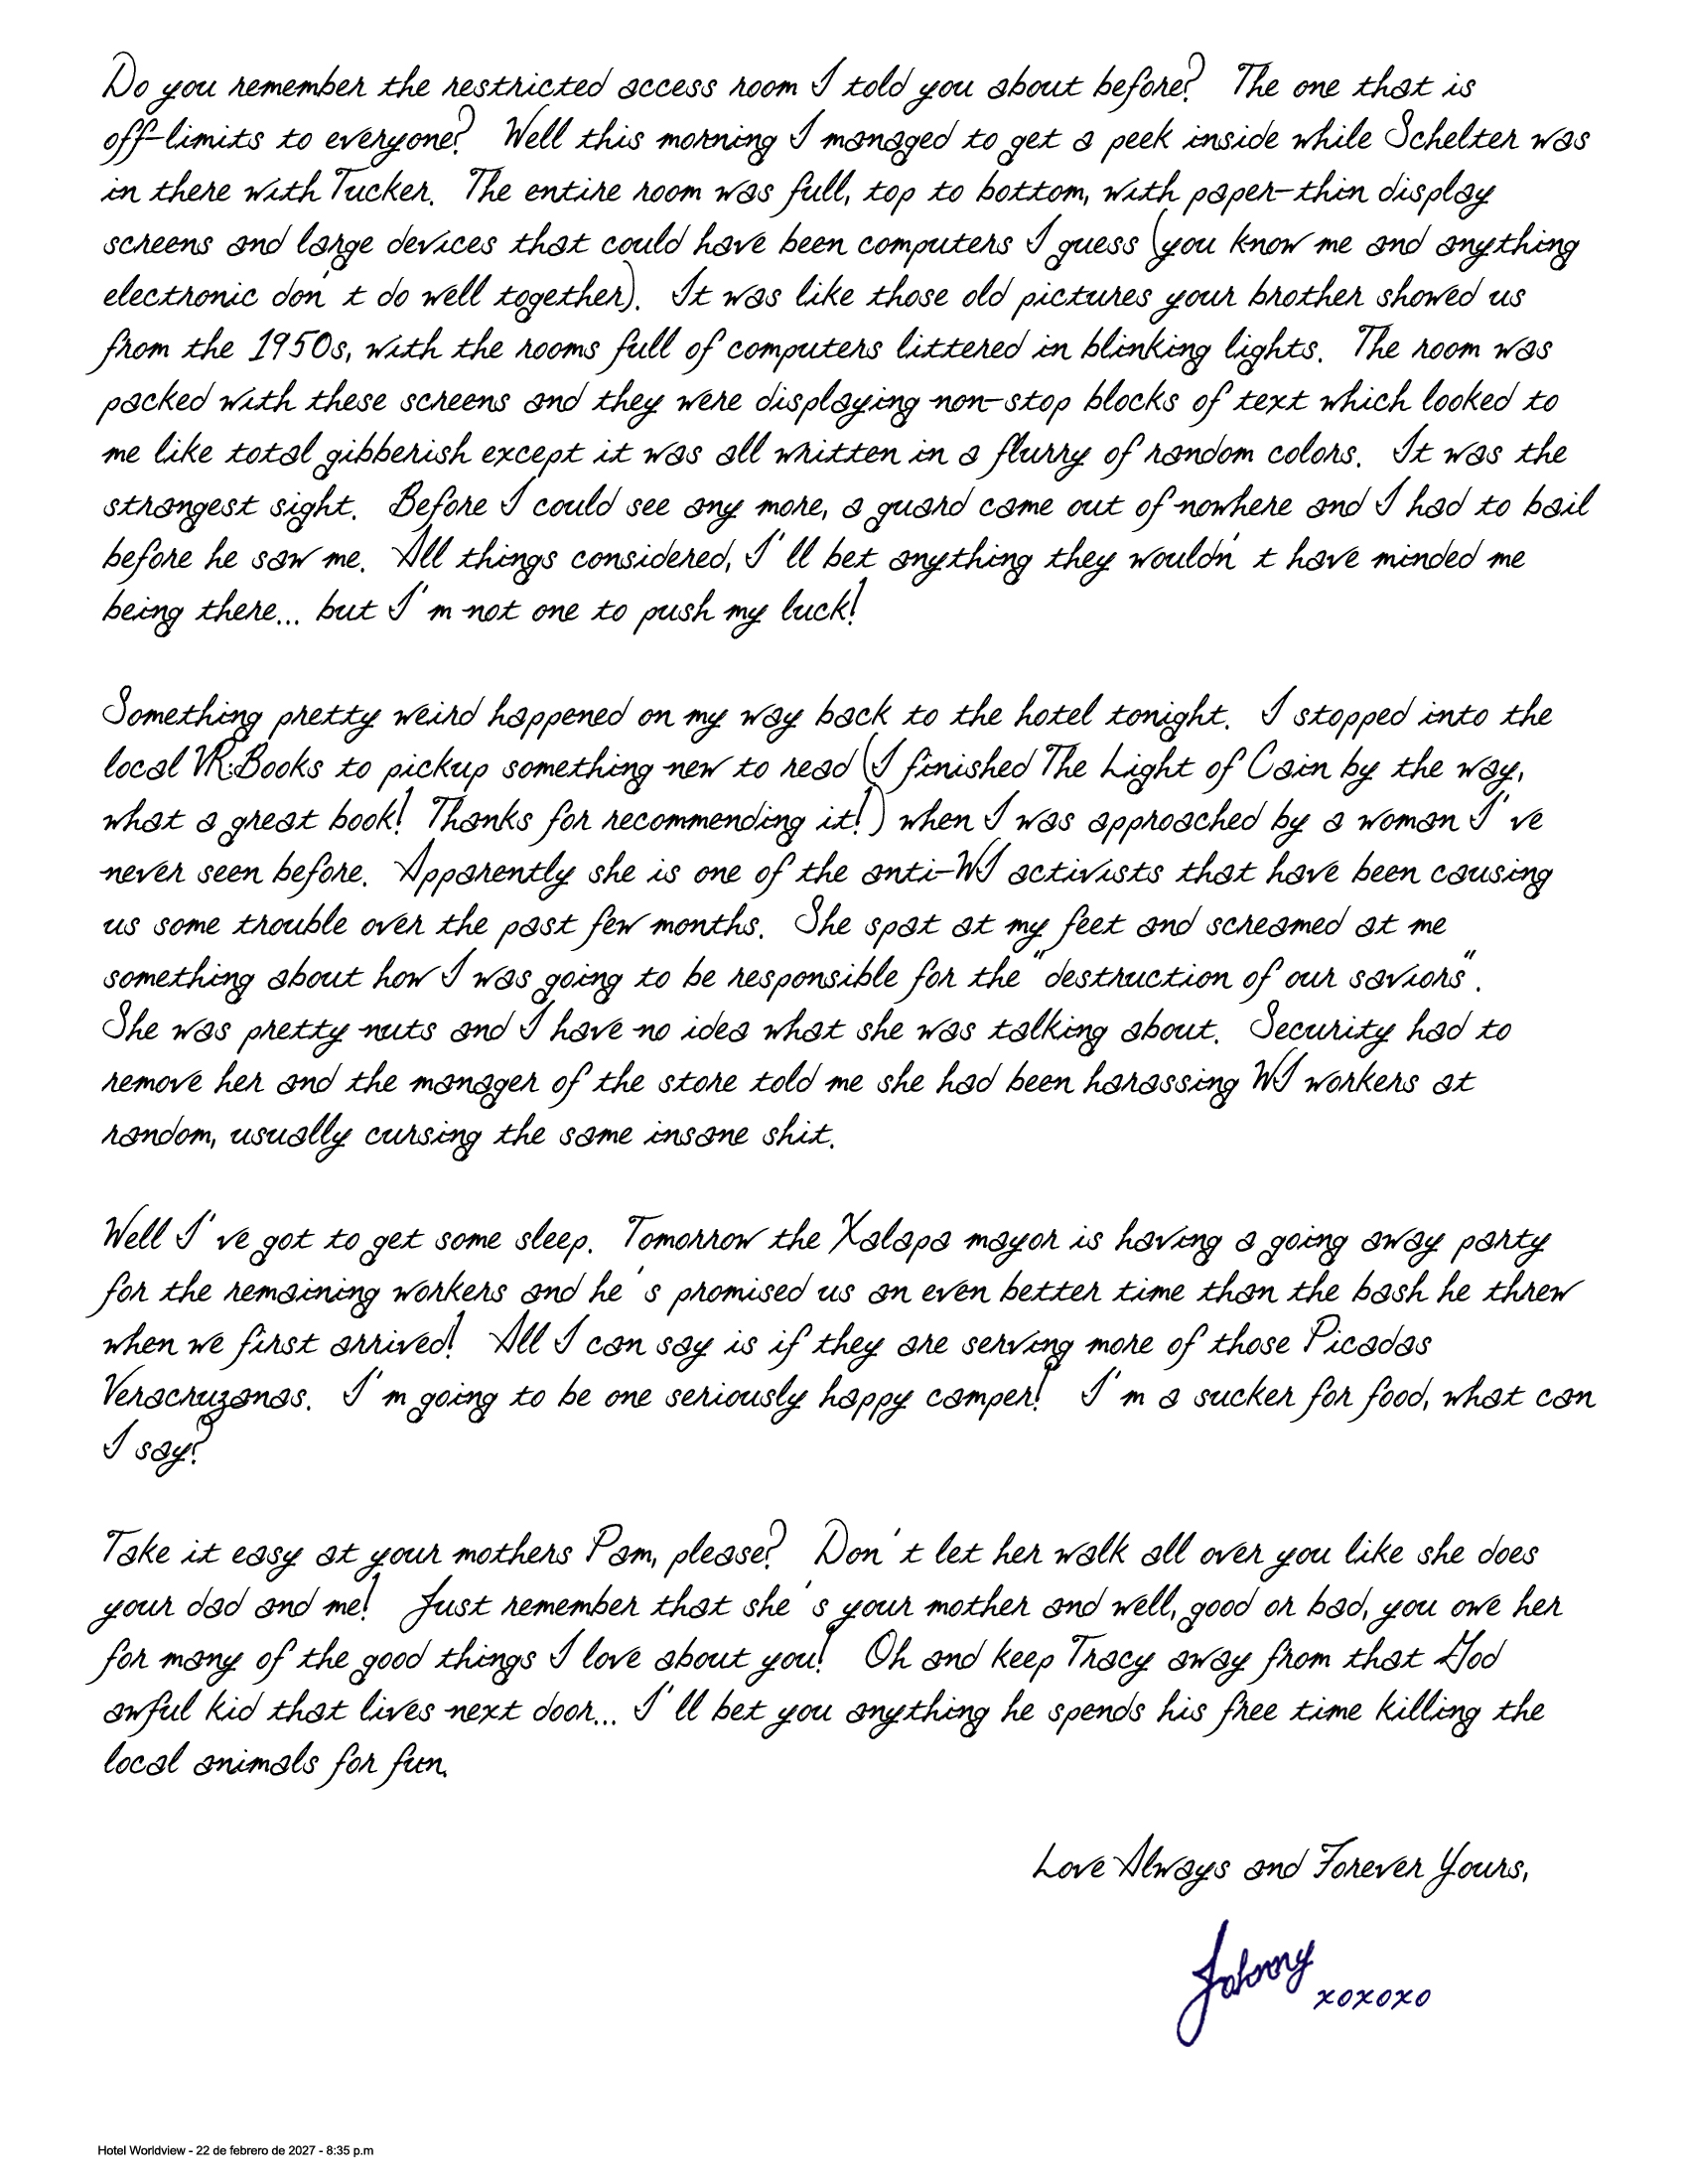 Do you remember the restricted access room I told you about before?  The one that is
off-limits to everyone?  Well this morning I managed to get a peek inside while Schelter was
in there with Tucker.  The entire room was full, top to bottom, with paper-thin display
screens and large devices that could have been computers I guess (you know me and anything
electronic don't do well together).  It was like those old pictures your brother showed us
from the 1950s, with the rooms full of computers littered in blinking lights.  The room was
packed with these screens and they were displaying non-stop blocks of text which looked to
me like total gibberish except it was all written in a flurry of random colors.  It was the
strangest sight.  Before I could see any more, a guard came out of nowhere and I had to bail
before he saw me.  All things considered, I'll bet anything they wouldn't have minded me
being there... but I'm not one to push my luck!
Something pretty weird happened on my way back to the hotel tonight.  I stopped into the
local VR:Books to pickup something new to read (I finished The Light of Cain by the way,
what a great book! Thanks for recommending it!) when I was approached by a woman I've
never seen before.  Apparently she is one of the anti-WI activists that have been causing
us some trouble over the past few months.  She spat at my feet and screamed at me
something about how I was going to be responsible for the "destruction of our saviors".
She was pretty nuts and I have no idea what she was talking about.  Security had to
remove her and the manager of the store told me she had been harassing WI workers at
random, usually cursing the same insane shit.
Well I've got to get some sleep.  Tomorrow the Xalapa mayor is having a going away party
for the remaining workers and he's promised us an even better time than the bash he threw
when we first arrived!  All I can say is if they are serving more of those Picadas
Veracruzanas.  I'm going to be one seriously happy camper!  I'm a sucker for food, what can
I say?
Take it easy at your mothers Pam, please?  Don't let her walk all over you like she does
your dad and me!  Just remember that she's your mother and well, good or bad, you owe her
for many of the good things I love about you!  Oh and keep Tracy away from that God
awful kid that lives next door... I'll bet you anything he spends his free time killing the
local animals for fun.
Love Always and Forever Yours,
Johnny
xoxoxo
Hotel Worldview - 22 de febrero de 2027 - 8:35 p.m